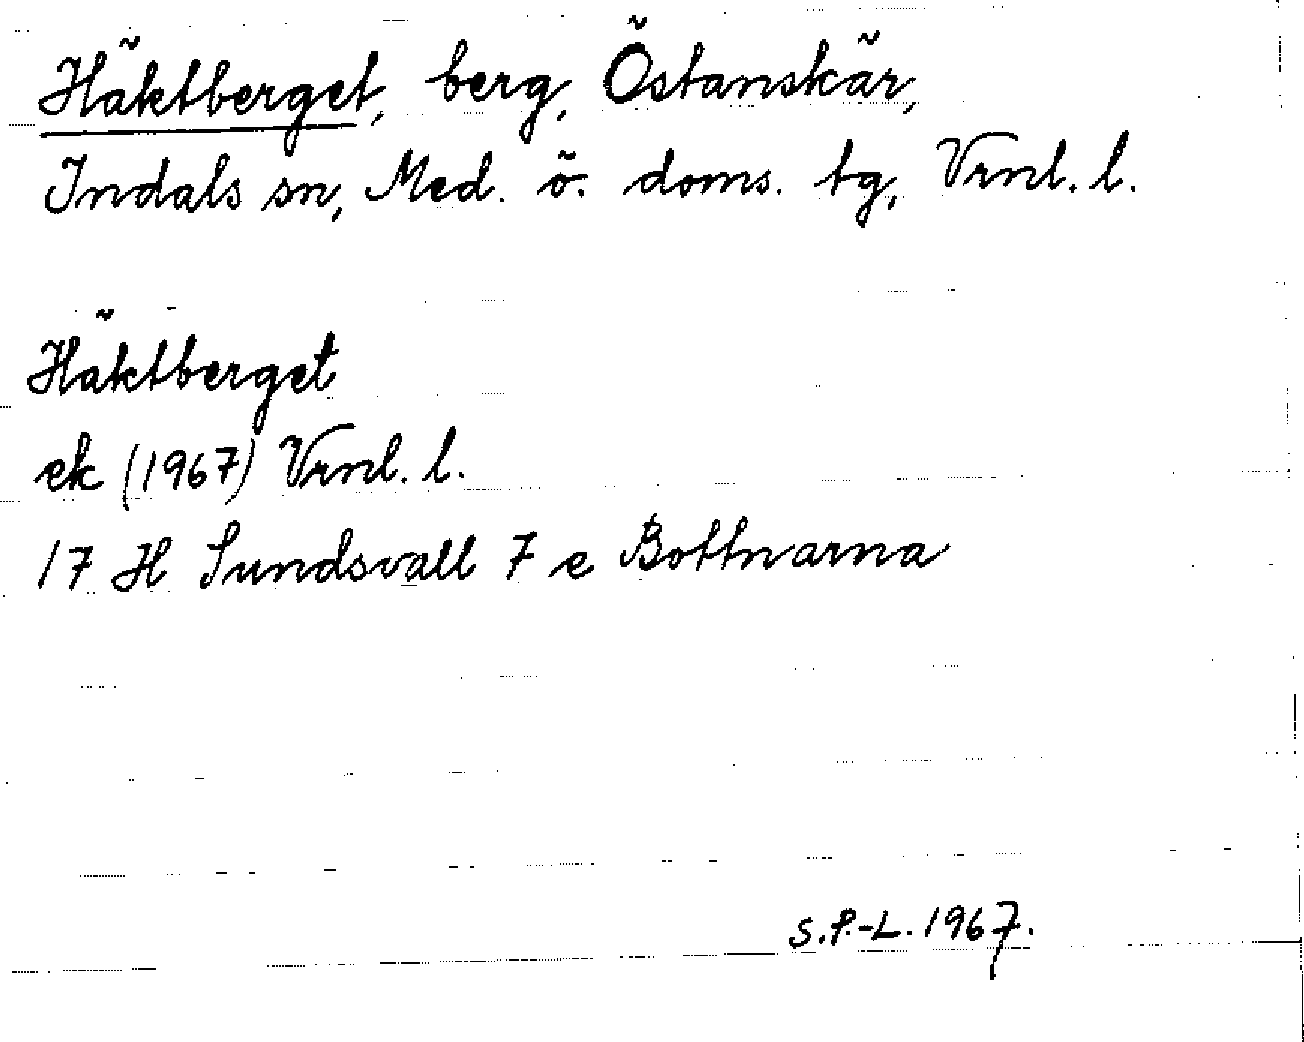 Häktberget, berg, Östanskär,
Indals sn, Med. ö. doms. tg, Vrnl. l.
Häktberget
ek (1967) Vrnl. l.
17 H Sundsvall 7 e Bottnarna
S.P.-L. 1967.